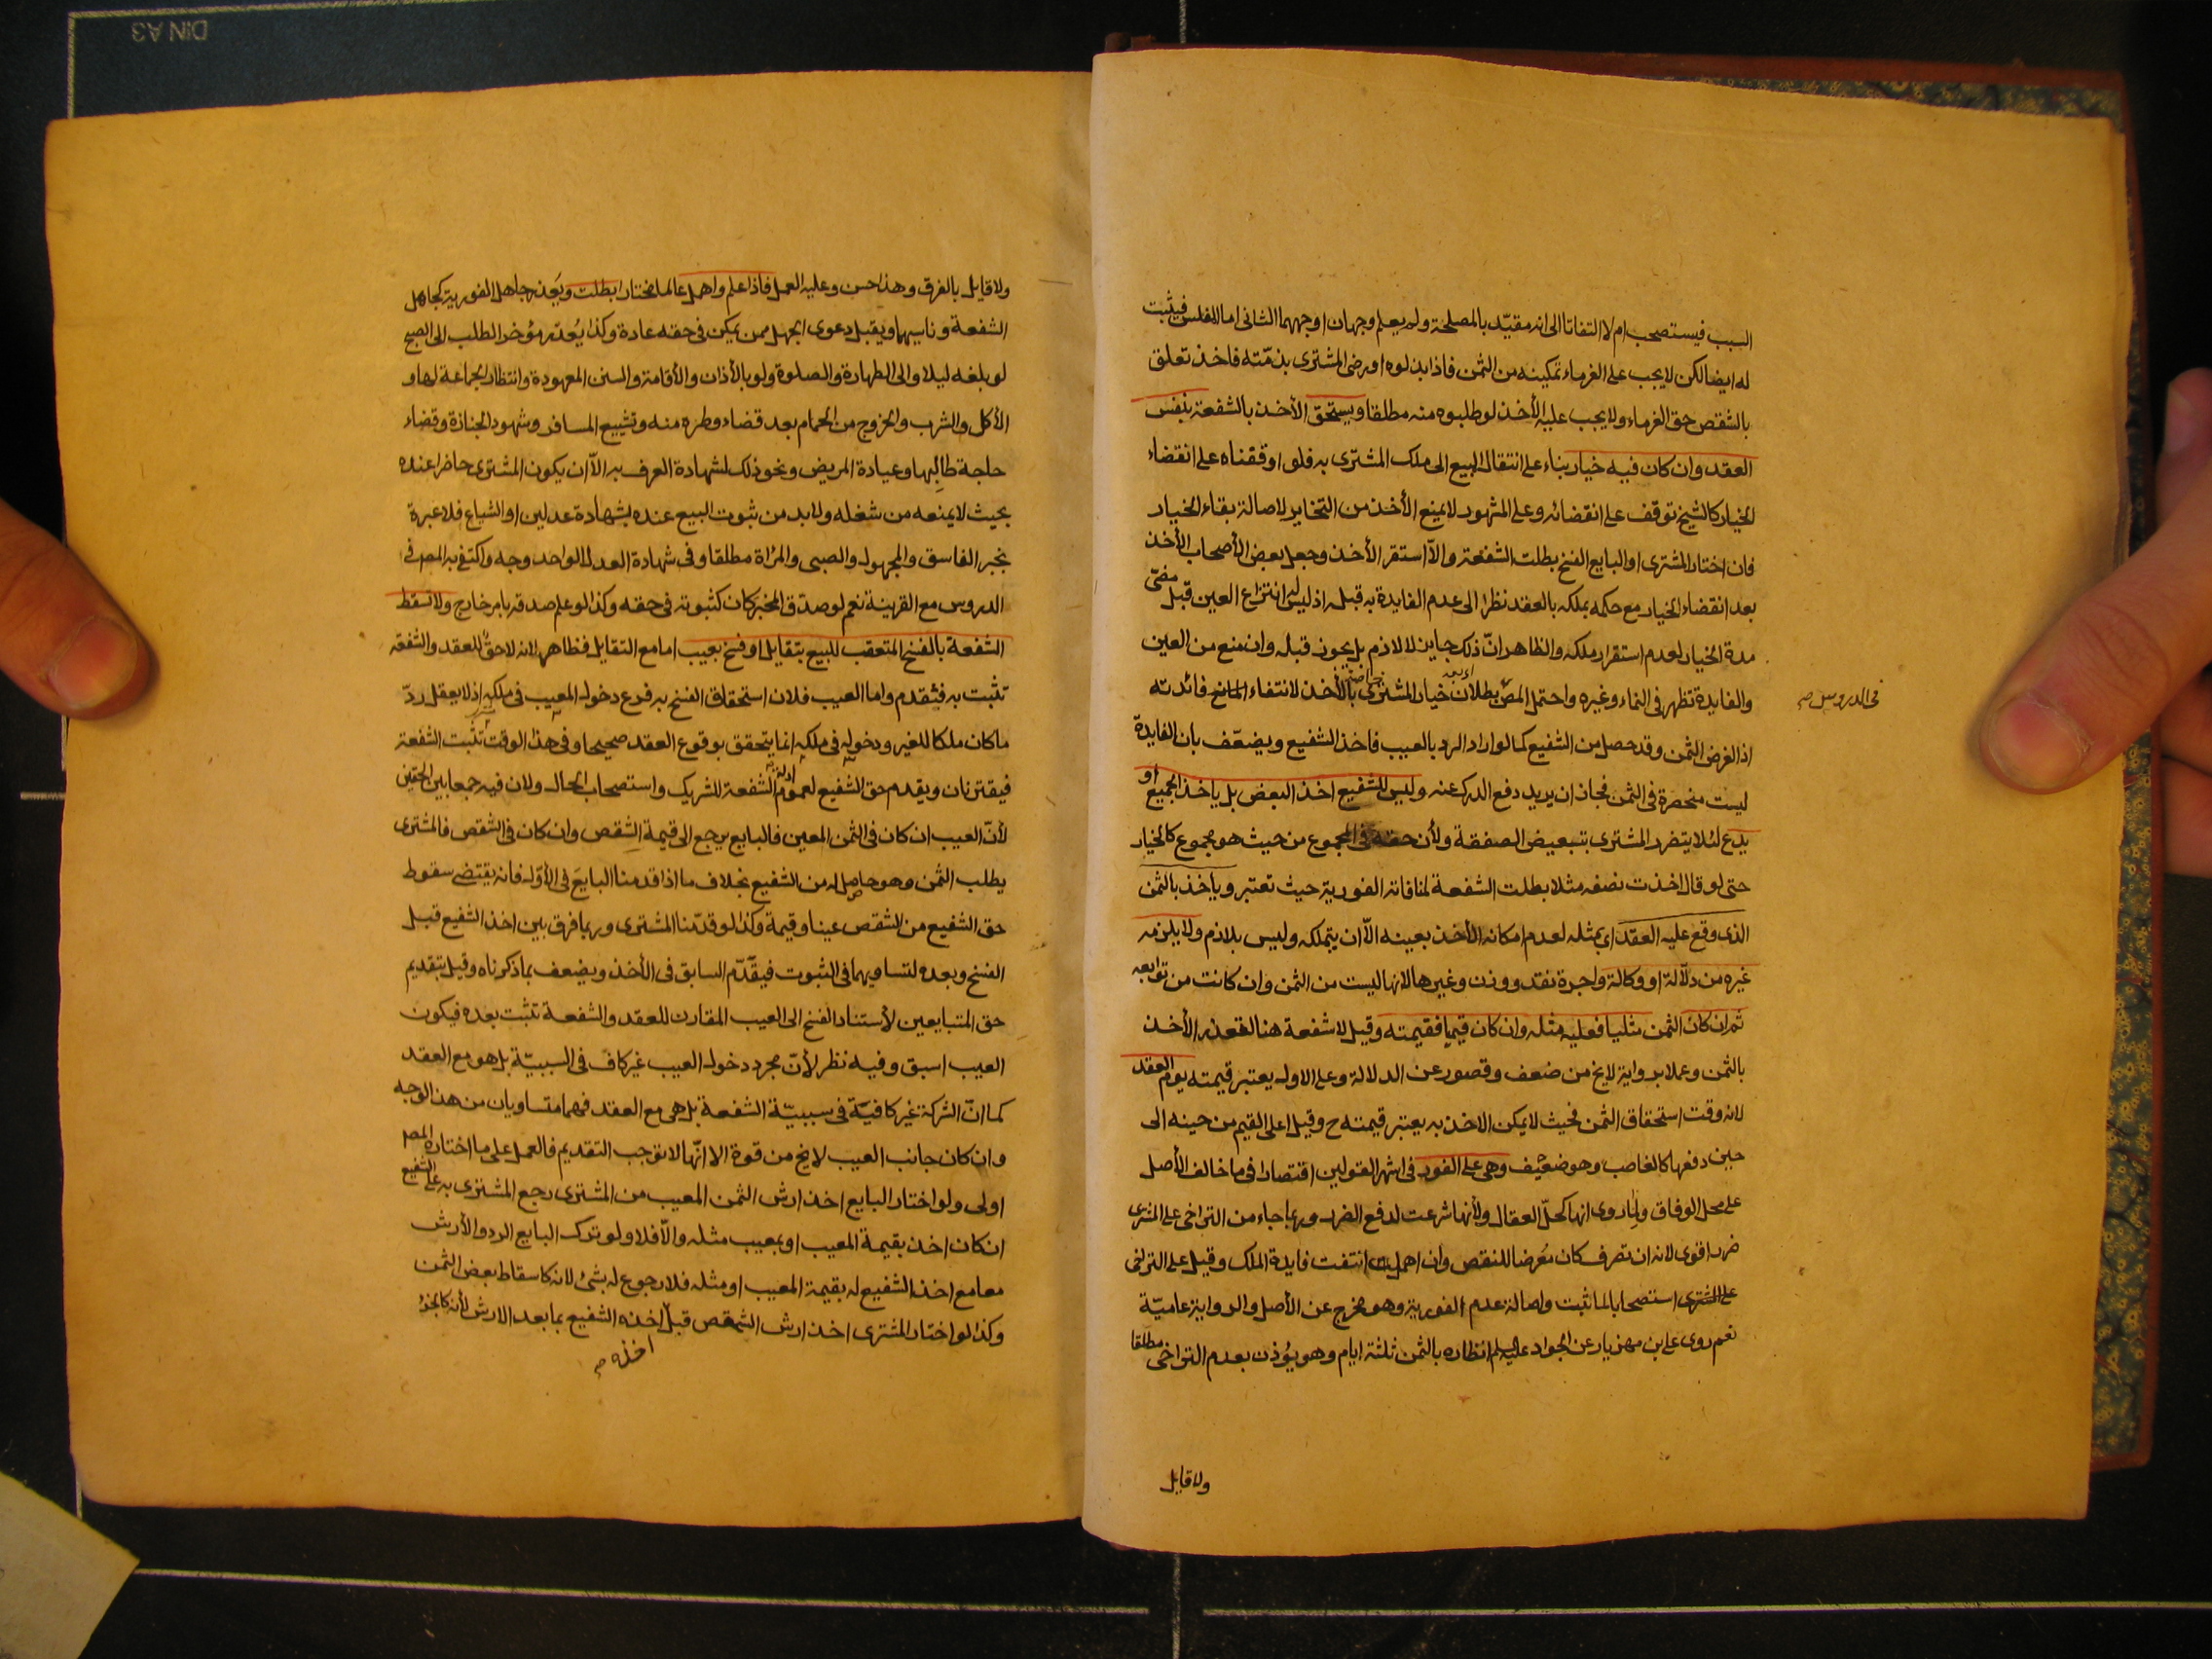 السبب فيستصحب ام لا التفاتا الى انه مقيّد بالمصلحة ولم يعلم وجهان اوجههما الثانى اما المفلس فيثبت
له ايضا لكن لا يجب على الغرماء تمكينه من الثمن فاذا بذلوه او رضى المشترى بذمّته فاخذ تعلق
بالشقص حق الغرماء ولا يجب عليه الأخذ لو طلبوه منه مطلقا ويستحق الأخذ بالشفعة بنفس
العقد وان كان فيه خيار بناء على انتقال المبيع الى ملك المشترى به فلو اوقفناه على انقضاء
الخيار كالشيخ توقف على انقضائه وعلى المشهور لا يمنع الأخذ من التخاير لاصالة بقاء الخيار
فان اختار المشترى او البايع الفسخ بطلت الشفعة والّا استقر الأخذ وجعل بعض الأصحاب الأخذ
بعد انقضاء الخيار مع حكمه بملكه بالعقد نظرا الى عدم الفايدة به قبله اذ ليس له انتزاع العين قبل مضىّ
مدة الخيار لعدم استقرار ملكه والظاهر انّ ذلك جايز لا لازم بل يجوز قبله وان منع من العين
والفايدة تظهر فى النماء وغيره واحتمل المص بطلان خيار المشترى بالأخذ لانتفاء فائدته
فى الدروس صح
اذ الغرض الثمن وقد حصل من الشفيع كما لو اراد الرد بالعيب فاخذ الشفيع ويضعّف بان الفايدة
ليست منحصرة فى الثمن فجاز ان يريد دفع الدرك عنه وليس للشفيع اخذ البعض بل ياخذ الجميع او
يدع لئلا يتضرر المشترى بتبعيض الصفقة ولأن حقه فى المجموع من حيث هو مجموع كالخيار
حتى لو قال اخذت نصفه مثلا بطلت الشفعة لمنافاته الفورية حيث تعتبر ويأخذ بالثمن
الذى وقع عليه العقد اى بمثله لعدم امكانه الأخذ بعينه الّا ان يتملكه وليس بلازم ولا يلزمه
غيره من دلّالة او وكالة واجرة نقد ووزن وغيرها لانها ليست من الثمن وان كانت من توابعه
ثم ان كان الثمن مثليا فعليه مثله وان كان قيميا فقيمته وقيل لا شفعة هنا لتعذر الأخذ
بالثمن وعملا برواية لا يخ من ضعف وقصور عن الدلالة وعلى الاول يعتبر قيمته يوم العقد
لانه وقت استحقاق الثمن فحيث لا يمكن الاخذ به يعتبر قيمته ح وقيل اعلى القيم من حينه الى
حين دفعها كالغاصب وهو ضعيف وهى على الفور فى اشهر القولين اقتصارا فى ما خالف الأصل
على محل الوفاق ولما روى انها كحلّ العقال ولأنها شرعت لدفع الضرر وربما جاء من التراخى على المشترى
ضرر اقوى لانه ان تصرف كان معرضا للنقص وان اهمل انتفت فايدة الملك وقيل على التراخى
استصحابا لما ثبت واصالة عدم الفورية وهو مخرج عن الأصل والرواية عاميّة
نعم روى على بن مهزيار عن الجواد عليه السلم انظاره بالثمن ثلثة ايام وهو يؤذن بعدم التراخى مطلقا
ولا قايل
ولا قايل بالفرق وهذا حسن وعليه العمل فاذا علم واهمل عالما مختارا بطلت ويعذر جاهل الفورية كجاهل
الشفعة وناسيهما ويقبل دعوى الجهل ممن يمكن فى حقه عادة وكذا يُعذر مؤخر الطلب الى الصبح
لو بلغه ليلا والى الطهارة والصلوة ولو بالأذان والأقامة والسنن المعهودة وانتظار الجماعة لها و
الأكل والشرب والخروج من الحمام بعد قضاء وطره منه وتشييع المسافر وشهود الجنازة وقضاء
حاجة طالبها وعيادة المريض ونحو ذلك لشهادة العرف به الّا ان يكون المشترى حاضرا عنده
بحيث لا يمنعه من شغله ولا بد من ثبوت البيع عنده بشهادة عدلين او الشياع فلا عبرة
بخبر الفاسق والمجهول والصبى والمراة مطلقا وفى شهادة العدل الواحد وجه واكتفى به المص فى
الدروس مع القرينة نعم لو صدّق المخبر كان كثبوته فى حقه وكذا لو علم صدقه بامر خارج ولا تسقط
الشفعة بالفسخ المتعقب للبيع بتقايل او فسخ بعيب اما مع التقايل فظاهر لانه لاحق للعقد والشفعة
تثبت به فيتقدم واما العيب فلان استحقاق الفسخ به فرع دخول المعيب فى ملكه اذ لا يعقل ردّ
ما كان ملكا للغير ودخوله فى ملكه انما يتحقق بوقوع العقد صحيحا وفى هذا الوقت تثبت الشفعة
فيقترنان ويقدم حق الشفيع لعموم ادلة الشفعة للشريك واستصحاب الحال ولان فيه جمعا بين الحقين
لأنّ العيب ان كان فى الثمن المعين فالبايع يرجع الى قيمة الشقص وان كان فى الشقص فالمشترى
يطلب الثمن وهو حاصل له من الشفيع بخلاف ما اذا قدمنا البايع فى الأول فانه يقتضى سقوط
حق الشفيع من الشقص عينا وقيمة وكذا لو قدّمنا المشترى وربما فرق بين اخذ الشفيع قبل
الفسخ وبعده لتساويهما فى الثبوت فيقدّم السابق فى الأخذ ويضعف بما ذكرناه وقيل بتقديم
حق المتبايعين لأستناد الفسخ الى العيب المقارن للعقد والشفعة تثبت بعده فيكون
العيب اسبق وفيه نظر لأنّ مجرد دخول العيب غير كاف فى السببيّة بل هو مع العقد
كما انّ الشركة غير كافيّة فى سببيّة الشفعة بل هى مع العقد فهما متساويان من هذا الوجه
وان كان جانب العيب لا يخ من قوة الا انّها لا توجب التقديم فالعمل على ما اختاره المص
اولى ولو اختار البايع اخذ ارش الثمن المعيب من المشترى رجع المشترى به على الشفيع
ان كان اخذ بقيمة المعيب او بمعيب مثله والّا فلا ولو ترك البايع الرد والأرش
معا مع اخذ الشفيع له بقيمة المعيب او مثله فلا رجوع له بشئ لانه كاسقاط بعض الثمن
وكذا لو اختار المشترى اخذ ارش الشقص قبل اخذه الشفيع بما بعد الارش لأنه كالجزء
اخذه صح